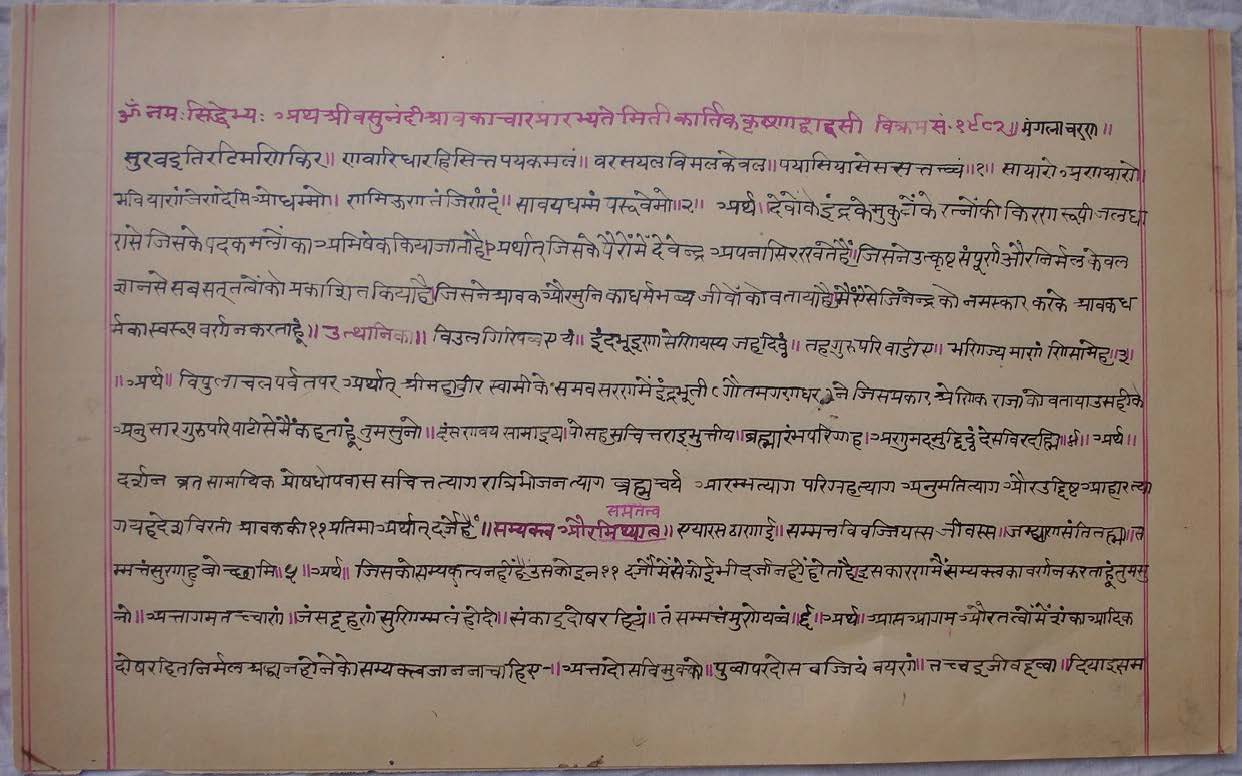 ॐ नमः सिद्धेभ्यः अथ श्रीवसुनंदीश्रावकाचार प्रारभ्यते मिती कार्तिक कृष्णा द्वादसी विक्रम सं. १९८२॥ मंगलाचरण॥
सुरवइतिरटिमणिकिर॥ णवारिधारहिसित्तपयकमलं॥ वरसयलविमलकेवल॥ पयासियासेसच्चत्तच्चं॥१॥ सायारो अणयारो॥
भवियाणंजेणदेसिओधम्मो॥ णमिऊणतंजिणिंदं॥ सावयधम्मं परूवेमो॥२॥ अर्थ। देवोंके इंद्रके मुकुटोंके रत्नोंकी किरण रूपी जलधा
रासे जिसके पदकमलोंका अभिषेक किया जाता है। अर्थात् जिसके पैरोंमें देवेन्द्र अपना सिर रखते हैं॥ जिसने उत्कृष्ट संपूर्ण और निर्मल केवल
ज्ञानसे सब सत् तत्वोंको प्रकाशित किया है। जिसने श्रावक और मुनि का धर्म भव्य जीवोंको बताया है। मैं ऐसे जिनेन्द्र को नमस्कार करके श्रावक ध
र्मका स्वरूप वर्णन करता हूं॥ उत्थानिका॥ विउलगिरिपव्वए यं॥ इंदभूइणा सेणियस्य जहदिट्ठं॥ तहगुरुपरिवाडीए॥ भणिज्यमाणं णिसामेह॥३॥
॥ अर्थ॥ विपुलाचल पर्वतपर अर्थात् श्रीमहावीर स्वामीके समवसरणमें इंद्रभूती (गौतमगणधर) ने जिसप्रकार श्रेणिक राजा को बताया उसहीके
अनुसार गुरुपरिपाटीसे मैं कहता हूं तुम सुनो॥ दंसणवय सामाइय। पोसहसचित्तराइभुत्तीय॥ ब्रह्मारंभपरिग्गह। अणुमदमुद्दिट्ठं देसविरदह्मि॥४॥ अर्थ॥
दर्शन व्रत सामायिक प्रोषधोपवास सचित्तत्याग रात्रिभोजनत्याग ब्रह्मचर्य आरम्भत्याग परिग्रहत्याग अनुमतित्याग और उद्दिष्ट आहारत्या
ग यह देशविरती श्रावककी ११ प्रतिमा अर्थात् दर्जे हैं॥ सम्यक्त्व और मिथ्यात्व॥ एयारसठाणाइं॥ सम्मत्तविवज्जियस्स जीवस्स॥ जम्हाणसंतितह्मा॥ स
म्मत्तंसुणणहवोच्छामि॥५॥ अर्थ॥ जिसको सम्यक्त्व नहीं है उसको इन ११ दर्जोंमेंसे कोई भी दर्जा नहीं होता है। इस कारण मैं सम्यक्त्वका वर्णन करता हूं तुम सु
नो॥ अत्तागमतच्चाणं॥ जंसद्दहणंसुणिम्मलंहोदी॥ संकाइदोसरहियं॥ तं सम्मत्तंमुणेयव्वं॥६॥ अर्थ॥ आप्त आगम और तत्वोंमें शंका आदिक
दोष रहित निर्मल श्रद्धान होनेको सम्यक्त्व जानना चाहिए॥ अत्तादोसविमुक्को॥ पुव्वापरदोसवज्जियं वयणं॥ तच्चइ जीवदव्वा॥ दियाइसम